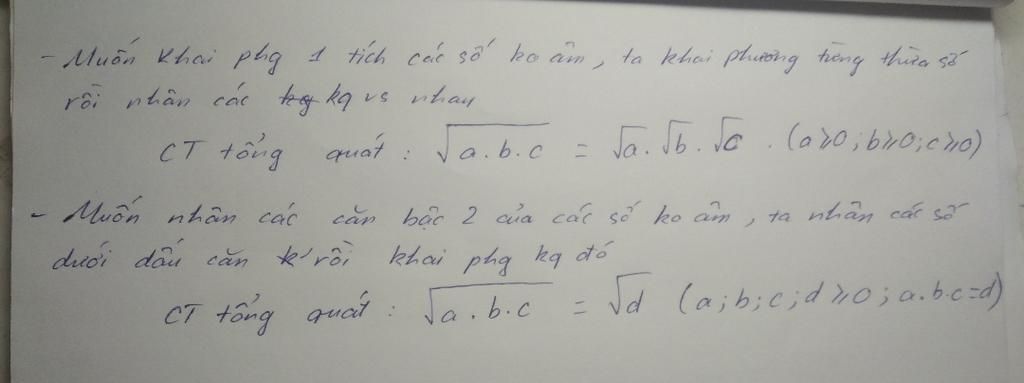 - Muốn khai phg 1 tích các số ko âm, ta khai phương từng thừa số
rồi nhân các kq vs nhau
CT tổng quát : √a.b.c = √a.√b.√c . (a≥0;b≥0;c≥0)
- Muốn nhân các căn bậc 2 của các số ko âm, ta nhân các số
dưới dấu căn rồi khai phg kq đó
CT tổng quát : √a.b.c = √d (a;b;c;d≥0; a.b.c=d)